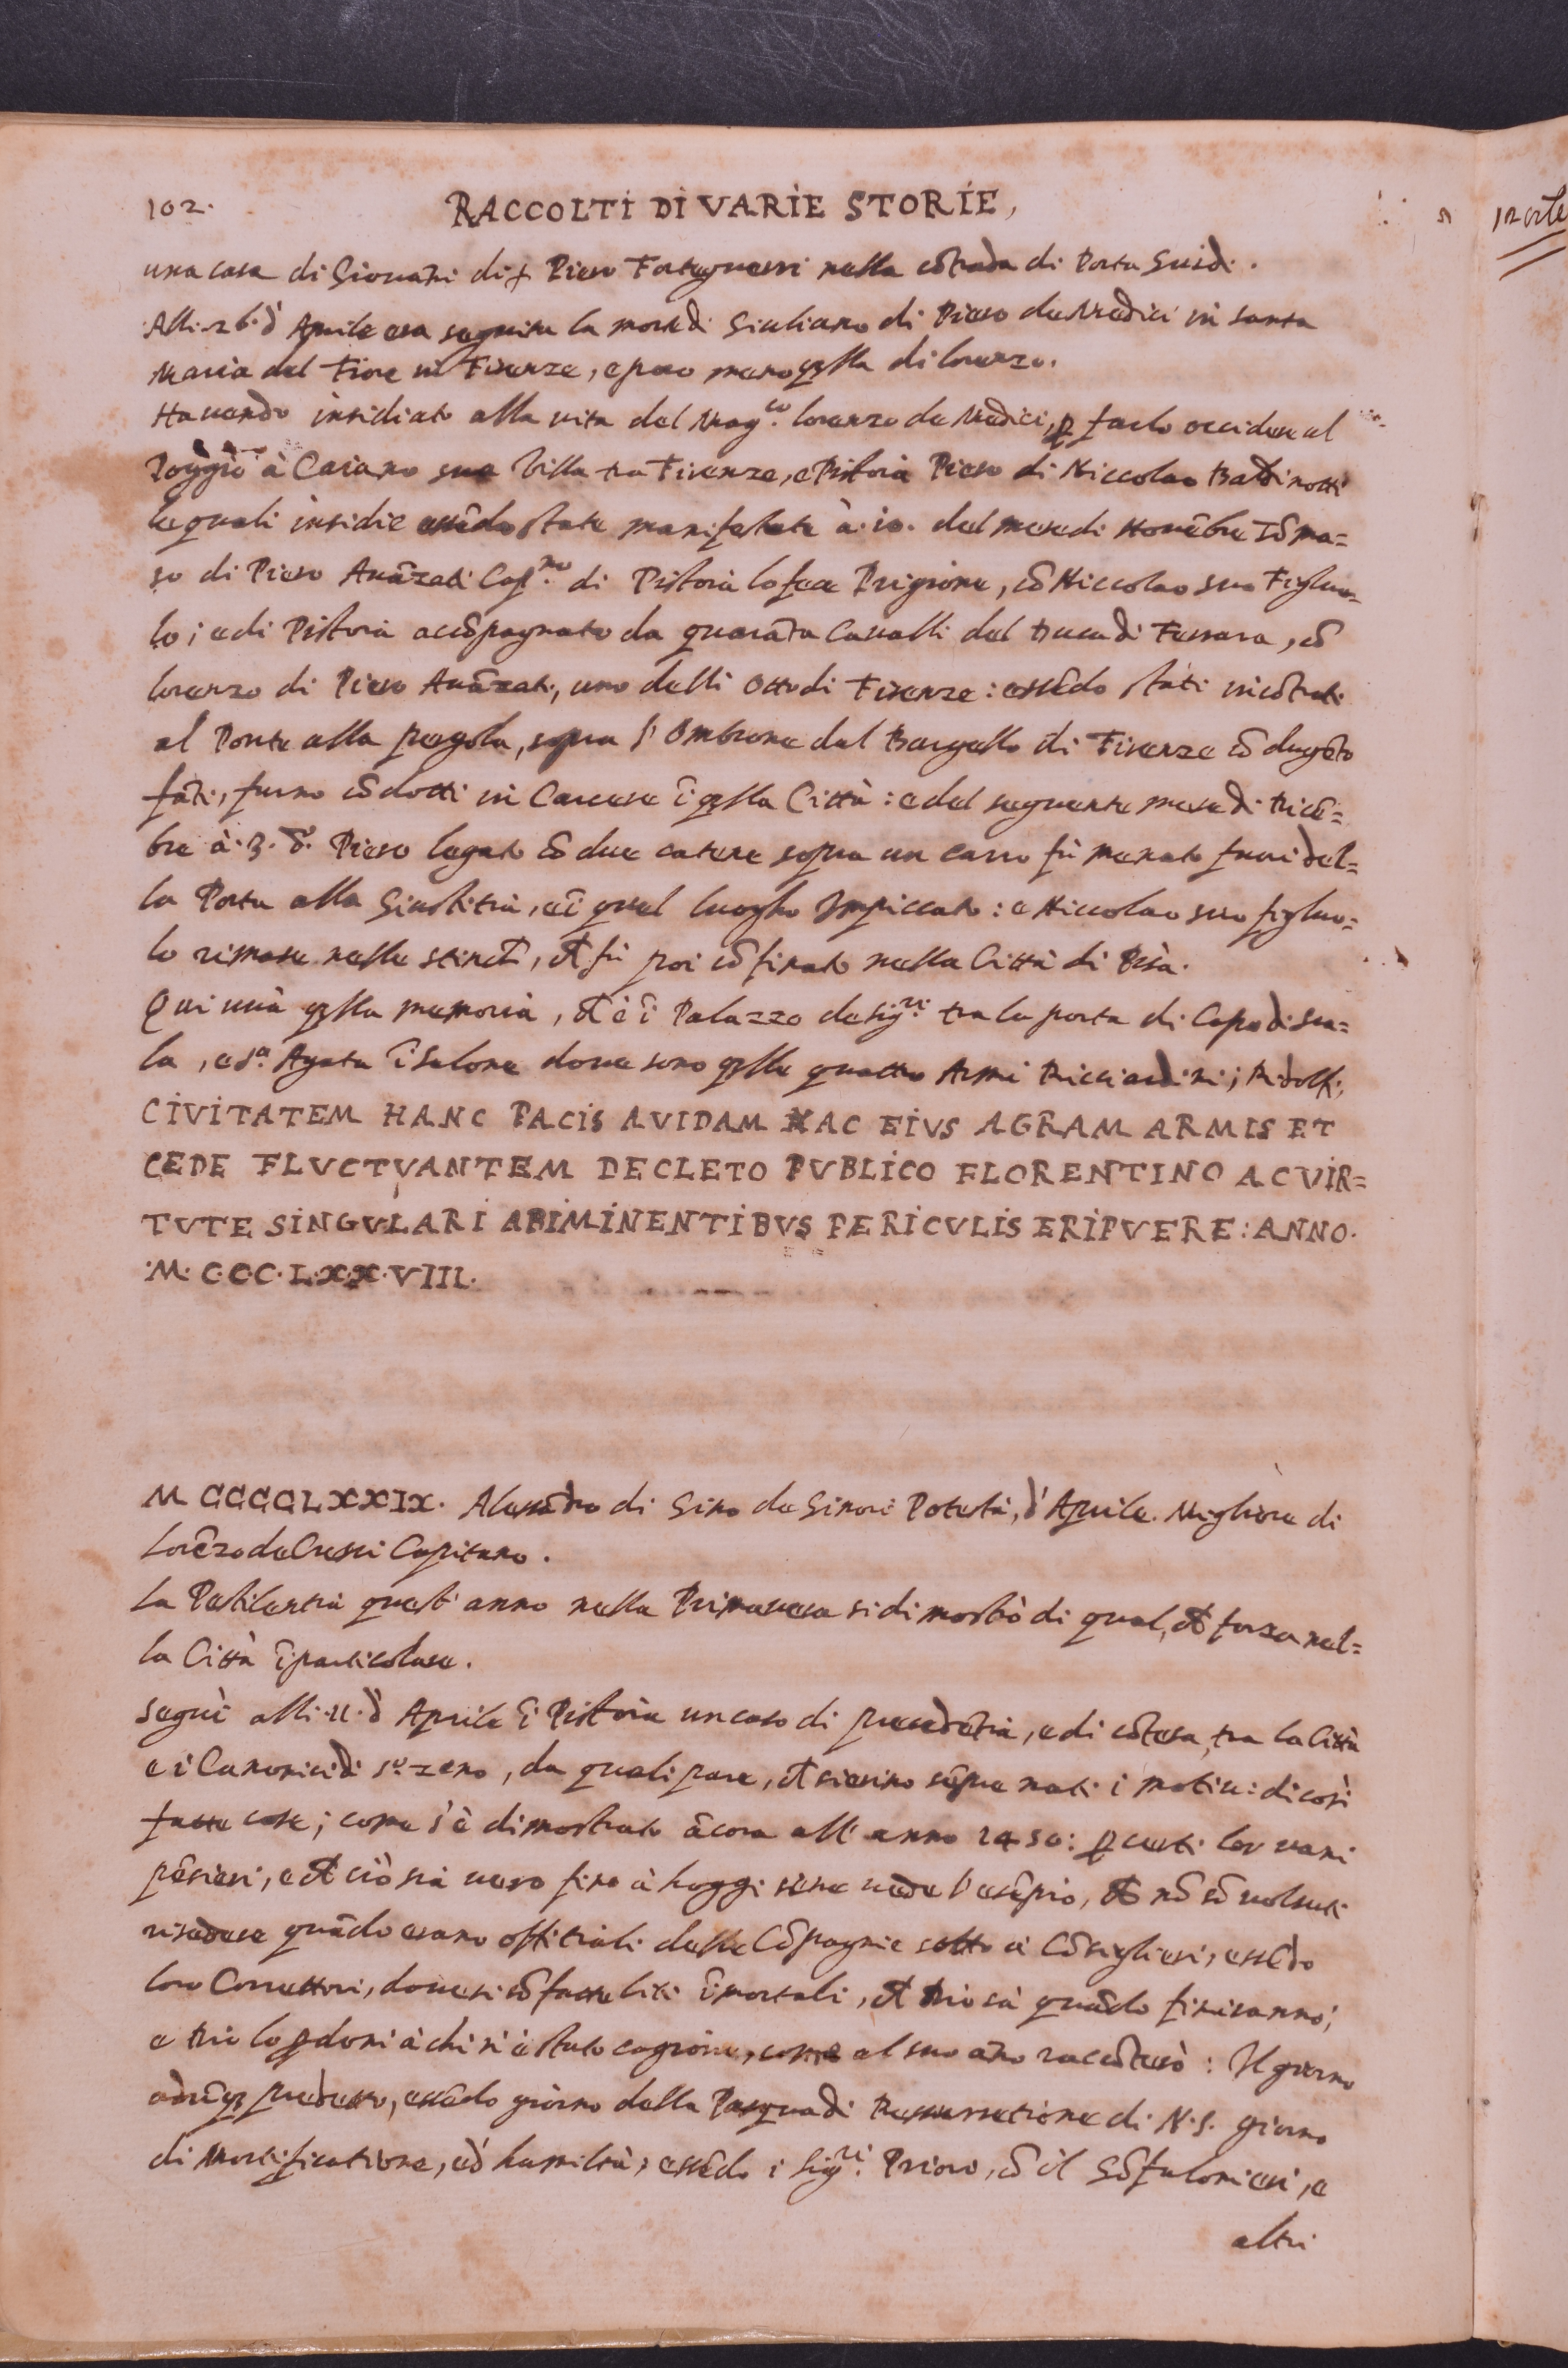 102.
RACCOLTI DI VARIE STORIE,
una casa di Giouãni di f Piero Forteguerri nella cõtrada di Porta Guidi.
Alli. 26. d' Aprile era seguita la morte di Giuliano di Piero de Medici in santa
Maria del Fiore in Firenze, e poco meno qlla di Lorenzo.
Hauendo insidiato alla uita del Mag.co Lorenzo de Medici, p farlo occidere al
Poggio à Caiano sua Villa tra Firenze, e Pistoia Piero di Niccolao Baldinotti
le quali insidie essẽdo state manifestate à. 10. del mese di Nouẽbre Tõma=
so di Piero Auãzati Cap.no di Pistoia lo fece Prigione, cõ Niccolao suo Figluo=
lo; e di Pistoia accõpagnato da quarãta Caualli del Duca di Ferrara, cõ
Lorenzo di Piero Auãzati, uno delli Otto di Firenze: essẽdo stati incõtrati
al Ponte alla pergola, sopra l' Ombrone dal Bargello di Firenze cõ dugẽto
fãti, furno cõdotti in Carcere ĩ qlla Città: e del seguente mese di Dicẽ=
bre à. 3. d.o Piero legato cõ due catene sopra un carro fù menato fuori del=
la Porta alla Giustitia, e ĩ quel luogho Impiccato: e Niccolao suo figluo=
lo rimase nelle stinche, et fù poi cõfinato nella Città di Pisa.
Qui uià qsta memoria, che è ĩ Palazzo de Sig.ri tra la porta di Capo di sca=
la, e S.a Agata ĩ Salone doue sono qlle quattro Armi Ricciardini; Ridolfi;
CIVITATEM HANC PACIS AVIDAM HAC EIVS AGRAM ARMIS ET
CEDE FLVCTVANTEM DECLETO PVBLICO FLORENTINO AC VIR=
TVTE SINGVLARI ABIMINENTIBVS PERICVLIS ERIPVERE: ANNO.
·M·C·C·C·L·X·X·VIII·
MCCCCLXXIX. Alessãdro di Gino de Ginori Potestà, d' Aprile. Migliore di
Lorẽzo de Cresci Capitano.
La Pestilentia quest' anno nella Primauera si dimostrò di qual, che forza nel=
la Città ĩ particolare.
Seguì alli. 11. d' Aprile ĩ Pistoia un caso di precedẽtia, e di cõtesa, tra la Città
e i Canonici di S.to Zeno, da quali pare, che sieno sẽpre nati i motiui di così
fatte cose; come s' è dimostrato ãcora all' anno 1450: p certi lor uani
pẽsieri, e che ciò sia uero fino à hoggi sene uede l' esẽpio, che nõ sõ uolsuti
risedere quãdo erano offitiali delle Cõpagnie sotto à Cõsiglieri, essẽdo
loro Correttori, doue si sõ fatte liti ĩmortali, che Dio sà quãdo finiranno;
e Dio lo pdoni à chi n' è stato cagione, come al suo ãno raccõterò: Il giorno
adũq predetto, essẽdo giorno della Pasqua di Ressurretione di N.S. giorno
di Mortificatione, e d' humiltà, essẽdo i Sig.ri Priori, cõ il Gõfalonieri, e
altri